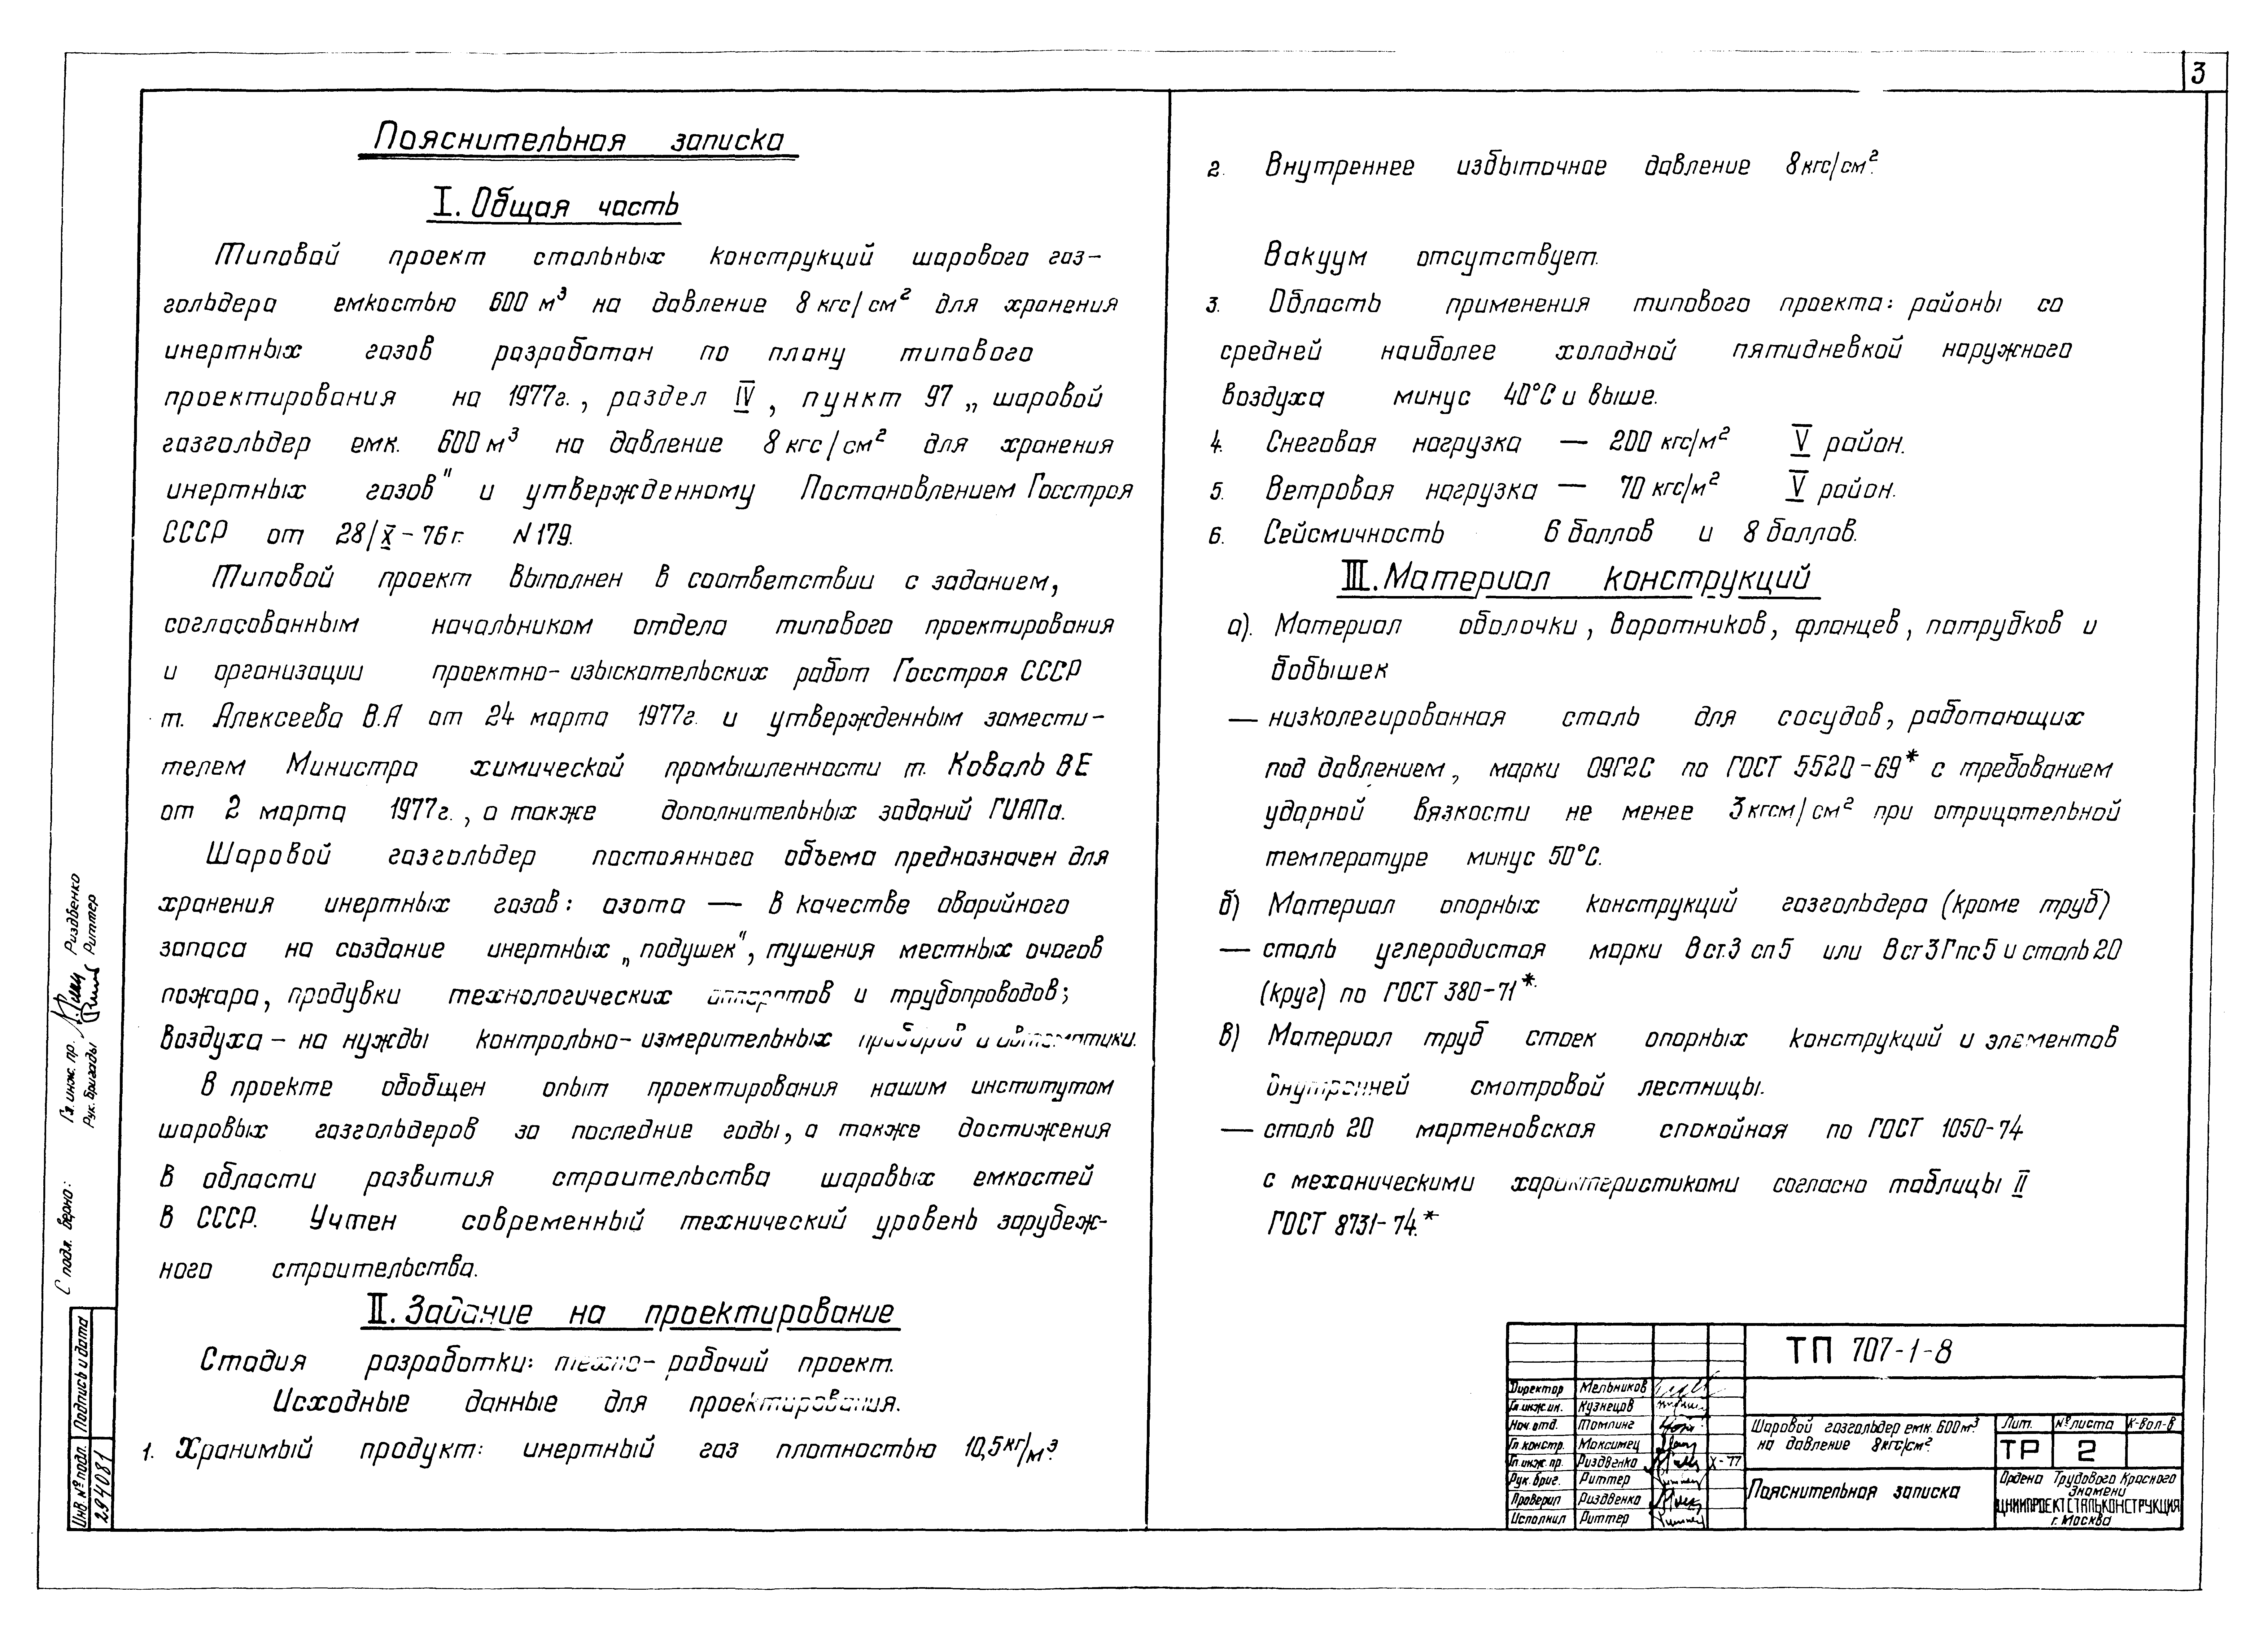 3
Пояснительная записка
I. Общая часть
Типовой проект стальных конструкций шарового газ-
гольдера емкостью 600 м³ на давление 8 кгс/см² для хранения
инертных газов разработан по плану типового
проектирования на 1977г., раздел IV, пункт 97 „шаровой
газгольдер емк. 600 м³ на давление 8 кгс/см² для хранения
инертных газов" и утвержденному Постановлением Госстроя
СССР от 28/X - 76г. N 179.
Типовой проект выполнен в соответствии с заданием,
согласованным начальником отдела типового проектирования
и организации проектно-изыскательских работ Госстроя СССР
т. Алексеева В.А от 24 марта 1977г. и утвержденным замести-
телем Министра химической промышленности т. Коваль ВЕ
от 2 марта 1977г., а также дополнительных заданий ГИАПа.
Шаровой газгольдер постоянного объема предназначен для
хранения инертных газов: азота — в качестве аварийного
запаса на создание инертных „подушек", тушения местных очагов
пожара, продувки технологических аппаратов и трубопроводов;
воздуха - на нужды контрольно-измерительных приборов и автоматики.
В проекте обобщен опыт проектирования нашим институтом
шаровых газгольдеров за последние годы, а также достижения
в области развития строительства шаровых емкостей
в СССР. Учтен современный технический уровень зарубеж-
ного строительства.
II. Задание на проектирование
Стадия разработки: техно-рабочий проект.
Исходные данные для проектирования.
1. Хранимый продукт: инертный газ плотностью 10,5 кг/м³.
2. Внутреннее избыточное давление 8 кгс/см².
Вакуум отсутствует.
3. Область применения типового проекта: районы со
средней наиболее холодной пятидневкой наружного
воздуха минус 40°С и выше.
4. Снеговая нагрузка — 200 кгс/м² V район.
5. Ветровая нагрузка — 70 кгс/м² V район.
6. Сейсмичность 6 баллов и 8 баллов.
III. Материал конструкций
а). Материал оболочки, воротников, фланцев, патрубков и
бобышек
— низколегированная сталь для сосудов, работающих
под давлением, марки 09Г2С по ГОСТ 5520-69* с требованием
ударной вязкости не менее 3 кгсм/см² при отрицательной
температуре минус 50°С.
б) Материал опорных конструкций газгольдера (кроме труб)
— сталь углеродистая марки Вст.3 сп5 или Вст3Гпс5 и сталь 20
(круг) по ГОСТ 380-71*.
в) Материал труб стоек опорных конструкций и элементов
внутренней смотровой лестницы.
— сталь 20 мартеновская спокойная по ГОСТ 1050-74
с механическими характеристиками согласно таблицы II
ГОСТ 8731-74.*
ТП 707-1-8
Директор Мельников
Гл. инж. ин. Кузнецов
Нач. отд. Томлинг
Гл. констр. Макситец
Гл. инж. пр. Риздвенко X-77
Рук. бриг. Риттер
Проверил Риздвенко
Исполнил Риттер
Шаровой газгольдер емк. 600м³
на давление 8кгс/см².
Пояснительная записка
Лит. № листа К-вол-в
ТР 2
Ордена Трудового Красного
Знамени
ЦНИИПРОЕКТСТАЛЬКОНСТРУКЦИЯ
г. Москва
С подл. верно:
Гл. инж. пр. Риздвенко
Рук. бригады Риттер
Подпись и дата
Инв. № подл.
294081